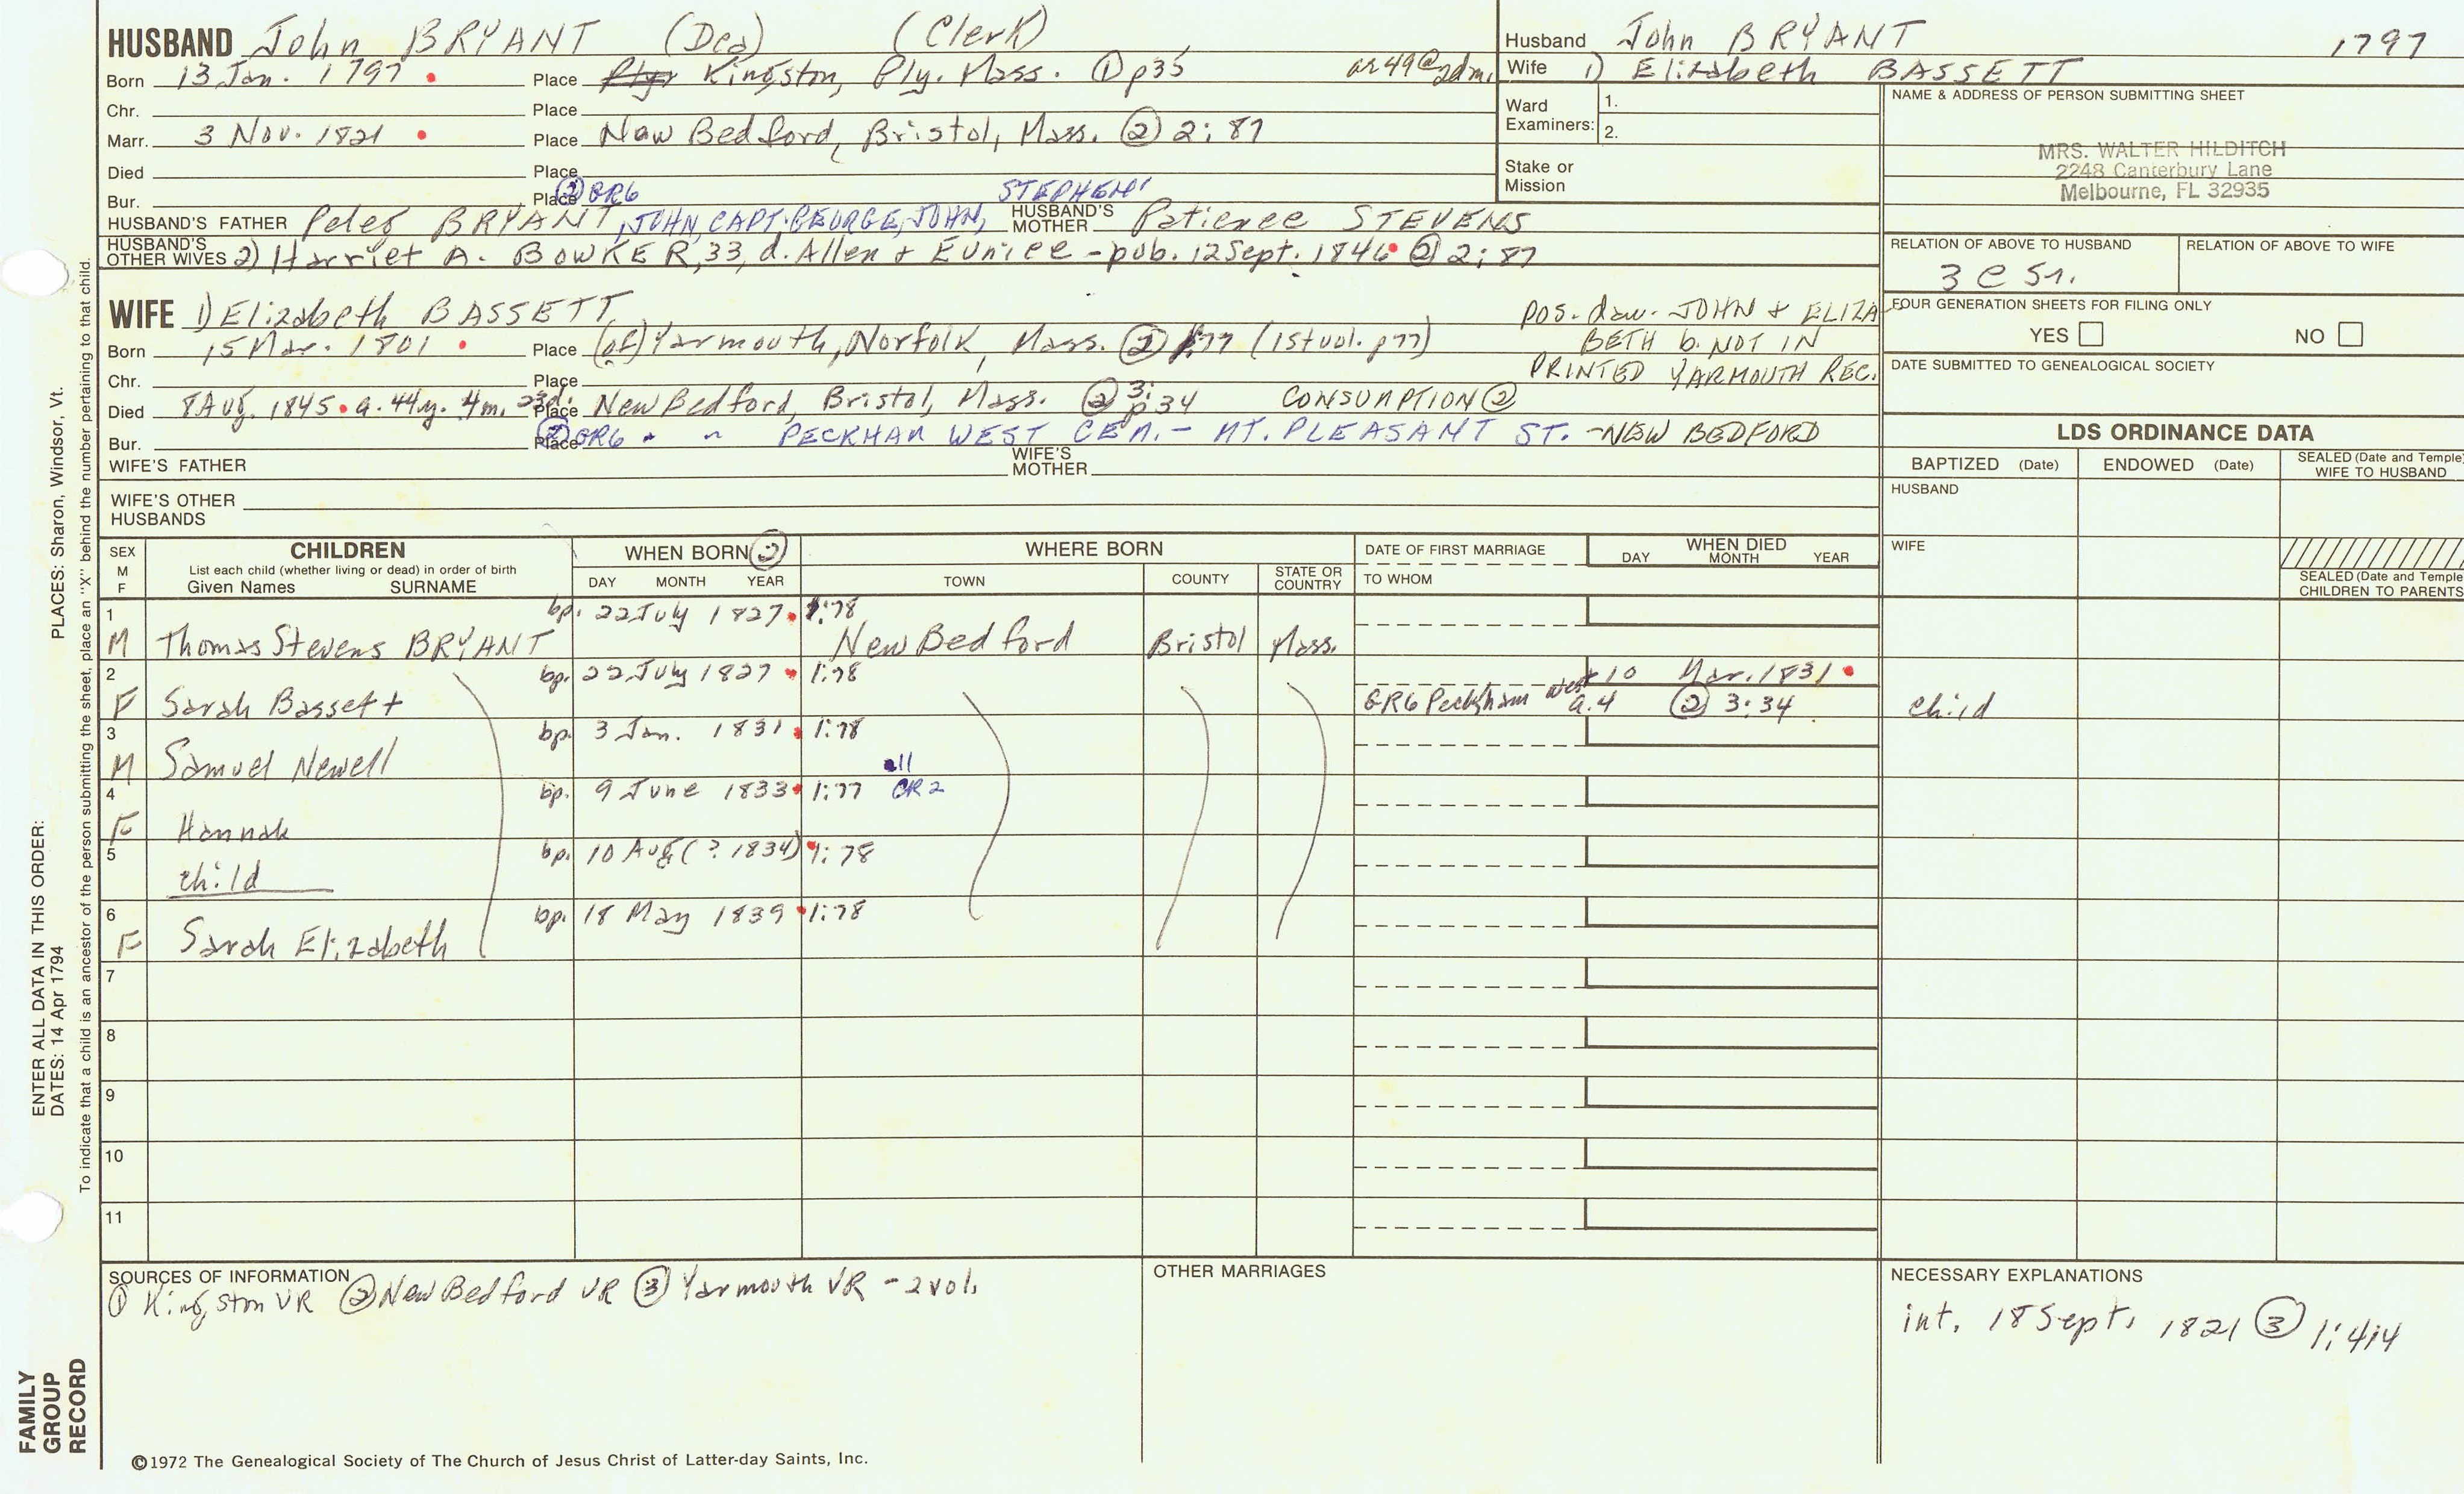 HUSBAND John BRYANT (Dea) (Clerk)
Born 13 Jan. 1797 Place Kingston, Ply. Mass. ① p35 ae 49 @ 2d m.
Chr. Place
Marr. 3 Nov. 1821 Place New Bedford, Bristol, Mass. ② 2:87
Died Place
Bur. Place ② GR6
HUSBAND'S FATHER Peter BRYANT, JOHN, CAPT. GEORGE, JOHN, STEPHEN HUSBAND'S MOTHER Patience STEVENS
HUSBAND'S OTHER WIVES 2) Harriet A. BOWKER, 33, d. Allen + Eunice - pub. 12 Sept. 1846 ② 2:87
WIFE 1) Elizabeth BASSETT
Born 15 Mar. 1801 Place (of) Yarmouth, Norfolk, Mass. ② 1:77 (1st vol. p77)
POS. daw. JOHN + ELIZA
BETH b. NOT IN
PRINTED YARMOUTH REC.
Chr. Place
Died 8 Aug. 1845 a. 44y. 4m. 23d. Place New Bedford, Bristol, Mass. ② 3: p34 CONSUMPTION ②
Bur. Place ② GR6 " " PECKHAM WEST CEM. - MT. PLEASANT ST. - NEW BEDFORD
WIFE'S FATHER WIFE'S MOTHER
WIFE'S OTHER HUSBANDS
Husband John BRYANT 1797
Wife 1) Elizabeth BASSETT
Ward Examiners: 1. 2.
Stake or Mission
NAME & ADDRESS OF PERSON SUBMITTING SHEET
MRS. WALTER HILDITCH
2248 Canterbury Lane
Melbourne, FL 32935
RELATION OF ABOVE TO HUSBAND RELATION OF ABOVE TO WIFE
3 C 5r.
FOUR GENERATION SHEETS FOR FILING ONLY
YES NO
DATE SUBMITTED TO GENEALOGICAL SOCIETY
LDS ORDINANCE DATA
BAPTIZED (Date) ENDOWED (Date) SEALED (Date and Temple) WIFE TO HUSBAND
HUSBAND
WIFE
SEALED (Date and Temple) CHILDREN TO PARENTS
SEX M F
CHILDREN
List each child (whether living or dead) in order of birth
Given Names SURNAME
WHEN BORN ②
DAY MONTH YEAR
WHERE BORN
TOWN COUNTY STATE OR COUNTRY
DATE OF FIRST MARRIAGE
TO WHOM
WHEN DIED
DAY MONTH YEAR
1 bp. 22 July 1827 1:78
M Thomas Stevens BRYANT New Bedford Bristol Mass.
2 bp. 22 July 1827 1:78 10 Mar. 1831
F Sarah Bassett GR6 Peckham West a.4 ② 3:34 child
3 bp. 3 Jan. 1831 1:78
M Samuel Newell all
4 bp. 9 June 1833 1:77 CR2
F Hannah
5 bp. 10 Aug (? 1834) 1:78
child
6 bp. 18 May 1839 1:78
F Sarah Elizabeth
7
8
9
10
11
SOURCES OF INFORMATION
① Kingston VR ② New Bedford VR ③ Yarmouth VR - 2 vol.
OTHER MARRIAGES
NECESSARY EXPLANATIONS
int. 18 Sept. 1821 ③ 1:414
©1972 The Genealogical Society of The Church of Jesus Christ of Latter-day Saints, Inc.
ENTER ALL DATA IN THIS ORDER:
DATES: 14 Apr 1794 PLACES: Sharon, Windsor, Vt.
To indicate that a child is an ancestor of the person submitting the sheet, place an "X" behind the number pertaining to that child.
FAMILY
GROUP
RECORD